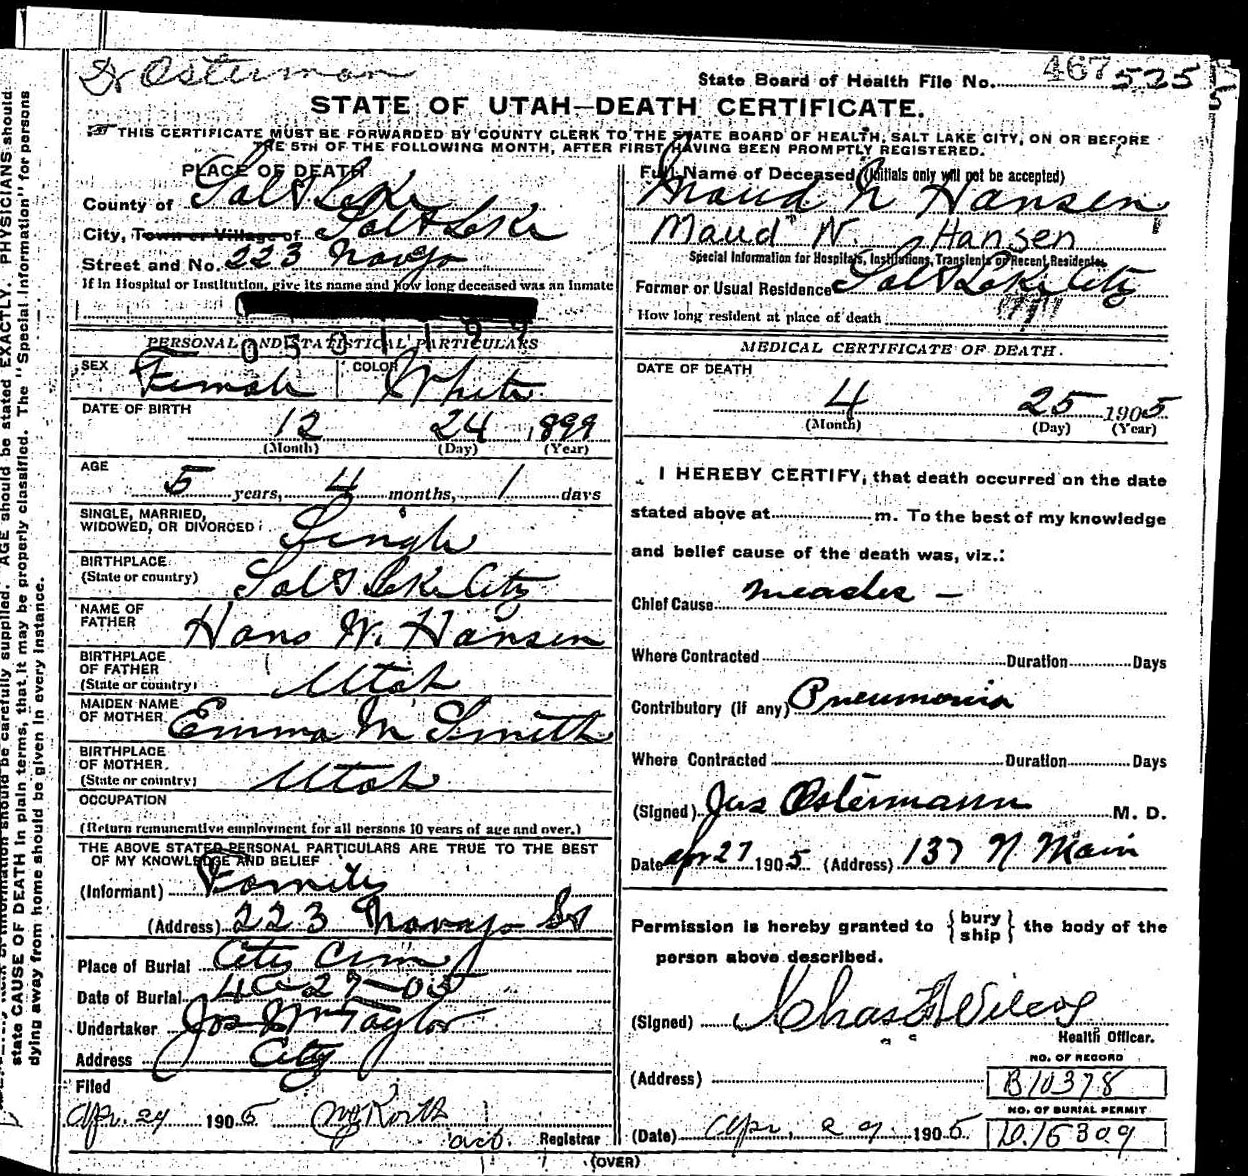 Dr Osterman
State Board of Health File No. 467 525
STATE OF UTAH—DEATH CERTIFICATE.
THIS CERTIFICATE MUST BE FORWARDED BY COUNTY CLERK TO THE STATE BOARD OF HEALTH, SALT LAKE CITY, ON OR BEFORE
THE 5TH OF THE FOLLOWING MONTH, AFTER FIRST HAVING BEEN PROMPTLY REGISTERED.
PLACE OF DEATH
County of Salt Lake
City, Town or Village of Salt Lake
Street and No. 223 Navajo
If in Hospital or Institution, give its name and how long deceased was an inmate
0530 1199
PERSONAL AND STATISTICAL PARTICULARS
SEX Female COLOR White
DATE OF BIRTH
12 24 1899
(Month) (Day) (Year)
AGE
5 years, 4 months, 1 days
SINGLE, MARRIED,
WIDOWED, OR DIVORCED Single
BIRTHPLACE
(State or country) Salt Lake City
NAME OF
FATHER Hans W. Hansen
BIRTHPLACE
OF FATHER
(State or country) Utah
MAIDEN NAME
OF MOTHER Emma M Smith
BIRTHPLACE
OF MOTHER
(State or country) Utah
OCCUPATION
(Return remunerative employment for all persons 10 years of age and over.)
THE ABOVE STATED PERSONAL PARTICULARS ARE TRUE TO THE BEST
OF MY KNOWLEDGE AND BELIEF
(Informant) Family
(Address) 223 Navajo St
Place of Burial City Cem
Date of Burial 4 27-05
Undertaker Jos Wm Taylor
Address City
Filed
Apr. 29 1905
act. Registrar
(OVER)
Full Name of Deceased (Initials only will not be accepted)
Maud N Hansen
Maud N. Hansen
Special Information for Hospitals, Institutions, Transients or Recent Residents.
Former or Usual Residence Salt Lake City
How long resident at place of death
MEDICAL CERTIFICATE OF DEATH.
DATE OF DEATH
4 25 1905
(Month) (Day) (Year)
I HEREBY CERTIFY, that death occurred on the date
stated above at m. To the best of my knowledge
and belief cause of the death was, viz.:
Chief Cause measles -
Where Contracted Duration Days
Contributory (if any) Pneumonia
Where Contracted Duration Days
(Signed) Jas Ostermann M. D.
Date Apr 27 1905 (Address) 137 N Main
Permission is hereby granted to { bury
ship } the body of the
person above described.
(Signed) Chas F Wilcox
Health Officer.
(Address)
NO. OF RECORD
B10378
NO. OF BURIAL PERMIT
D.15309
(Date) Apr. 29. 1905
state CAUSE OF DEATH in plain terms, that it may be properly classified. The "Special Information" for persons
dying away from home should be given in every instance.
information should be carefully supplied. AGE should be stated EXACTLY. PHYSICIANS should